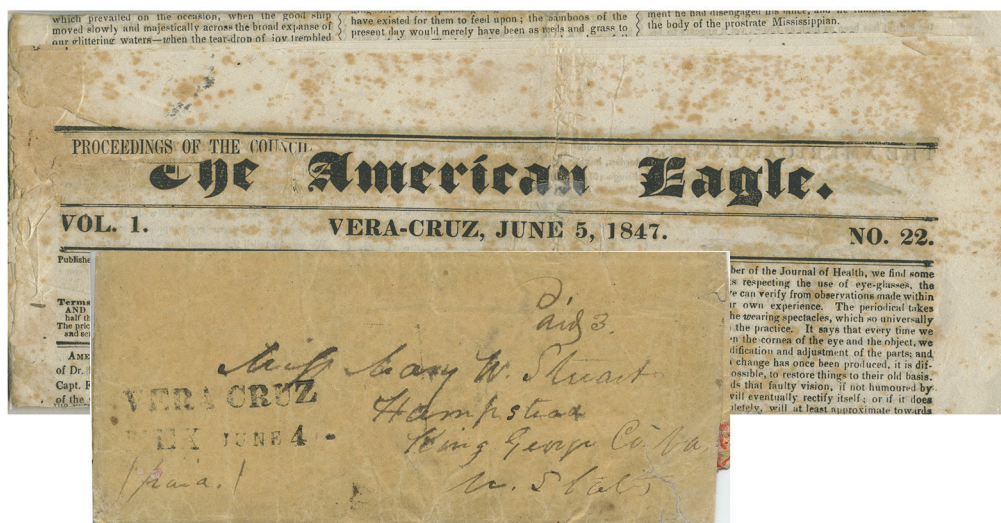 which prevailed on the occasion, when the good ship
moved slowly and majestically across the broad expanse of
our glittering waters—when the tear-drop of joy trembled
have existed for them to feed upon; the bamboos of the
present day would merely have been as reeds and grass to
ment he had disengaged his lance, and
the body of the prostrate Mississippian.
PROCEEDINGS OF THE COUNCIL
The American Eagle.
VOL. 1.
VERA-CRUZ, JUNE 5, 1847.
NO. 22.
Publishe
Terms
AND
half th
The pric
and
AME
of Dr.
Capt.
of the
ber of the Journal of Health, we find some
s respecting the use of eye-glasses, the
e can verify from observations made within
r own experience. The periodical takes
he wearing spectacles, which so universally
the practice. It says that every time we
n the cornea of the eye and the object, we
dification and adjustment of the parts; and
change has once been produced, it is dif-
ossible, to restore things to their old basis.
ds that faulty vision, if not humoured by
will eventually rectify itself; or if it does
pletely, will at least approximate towards
Paid 3.
Miss Mary W. Stuart
Hampstead
King George Co Va
U. States
VERA CRUZ
MEX JUNE 4
(paid.)